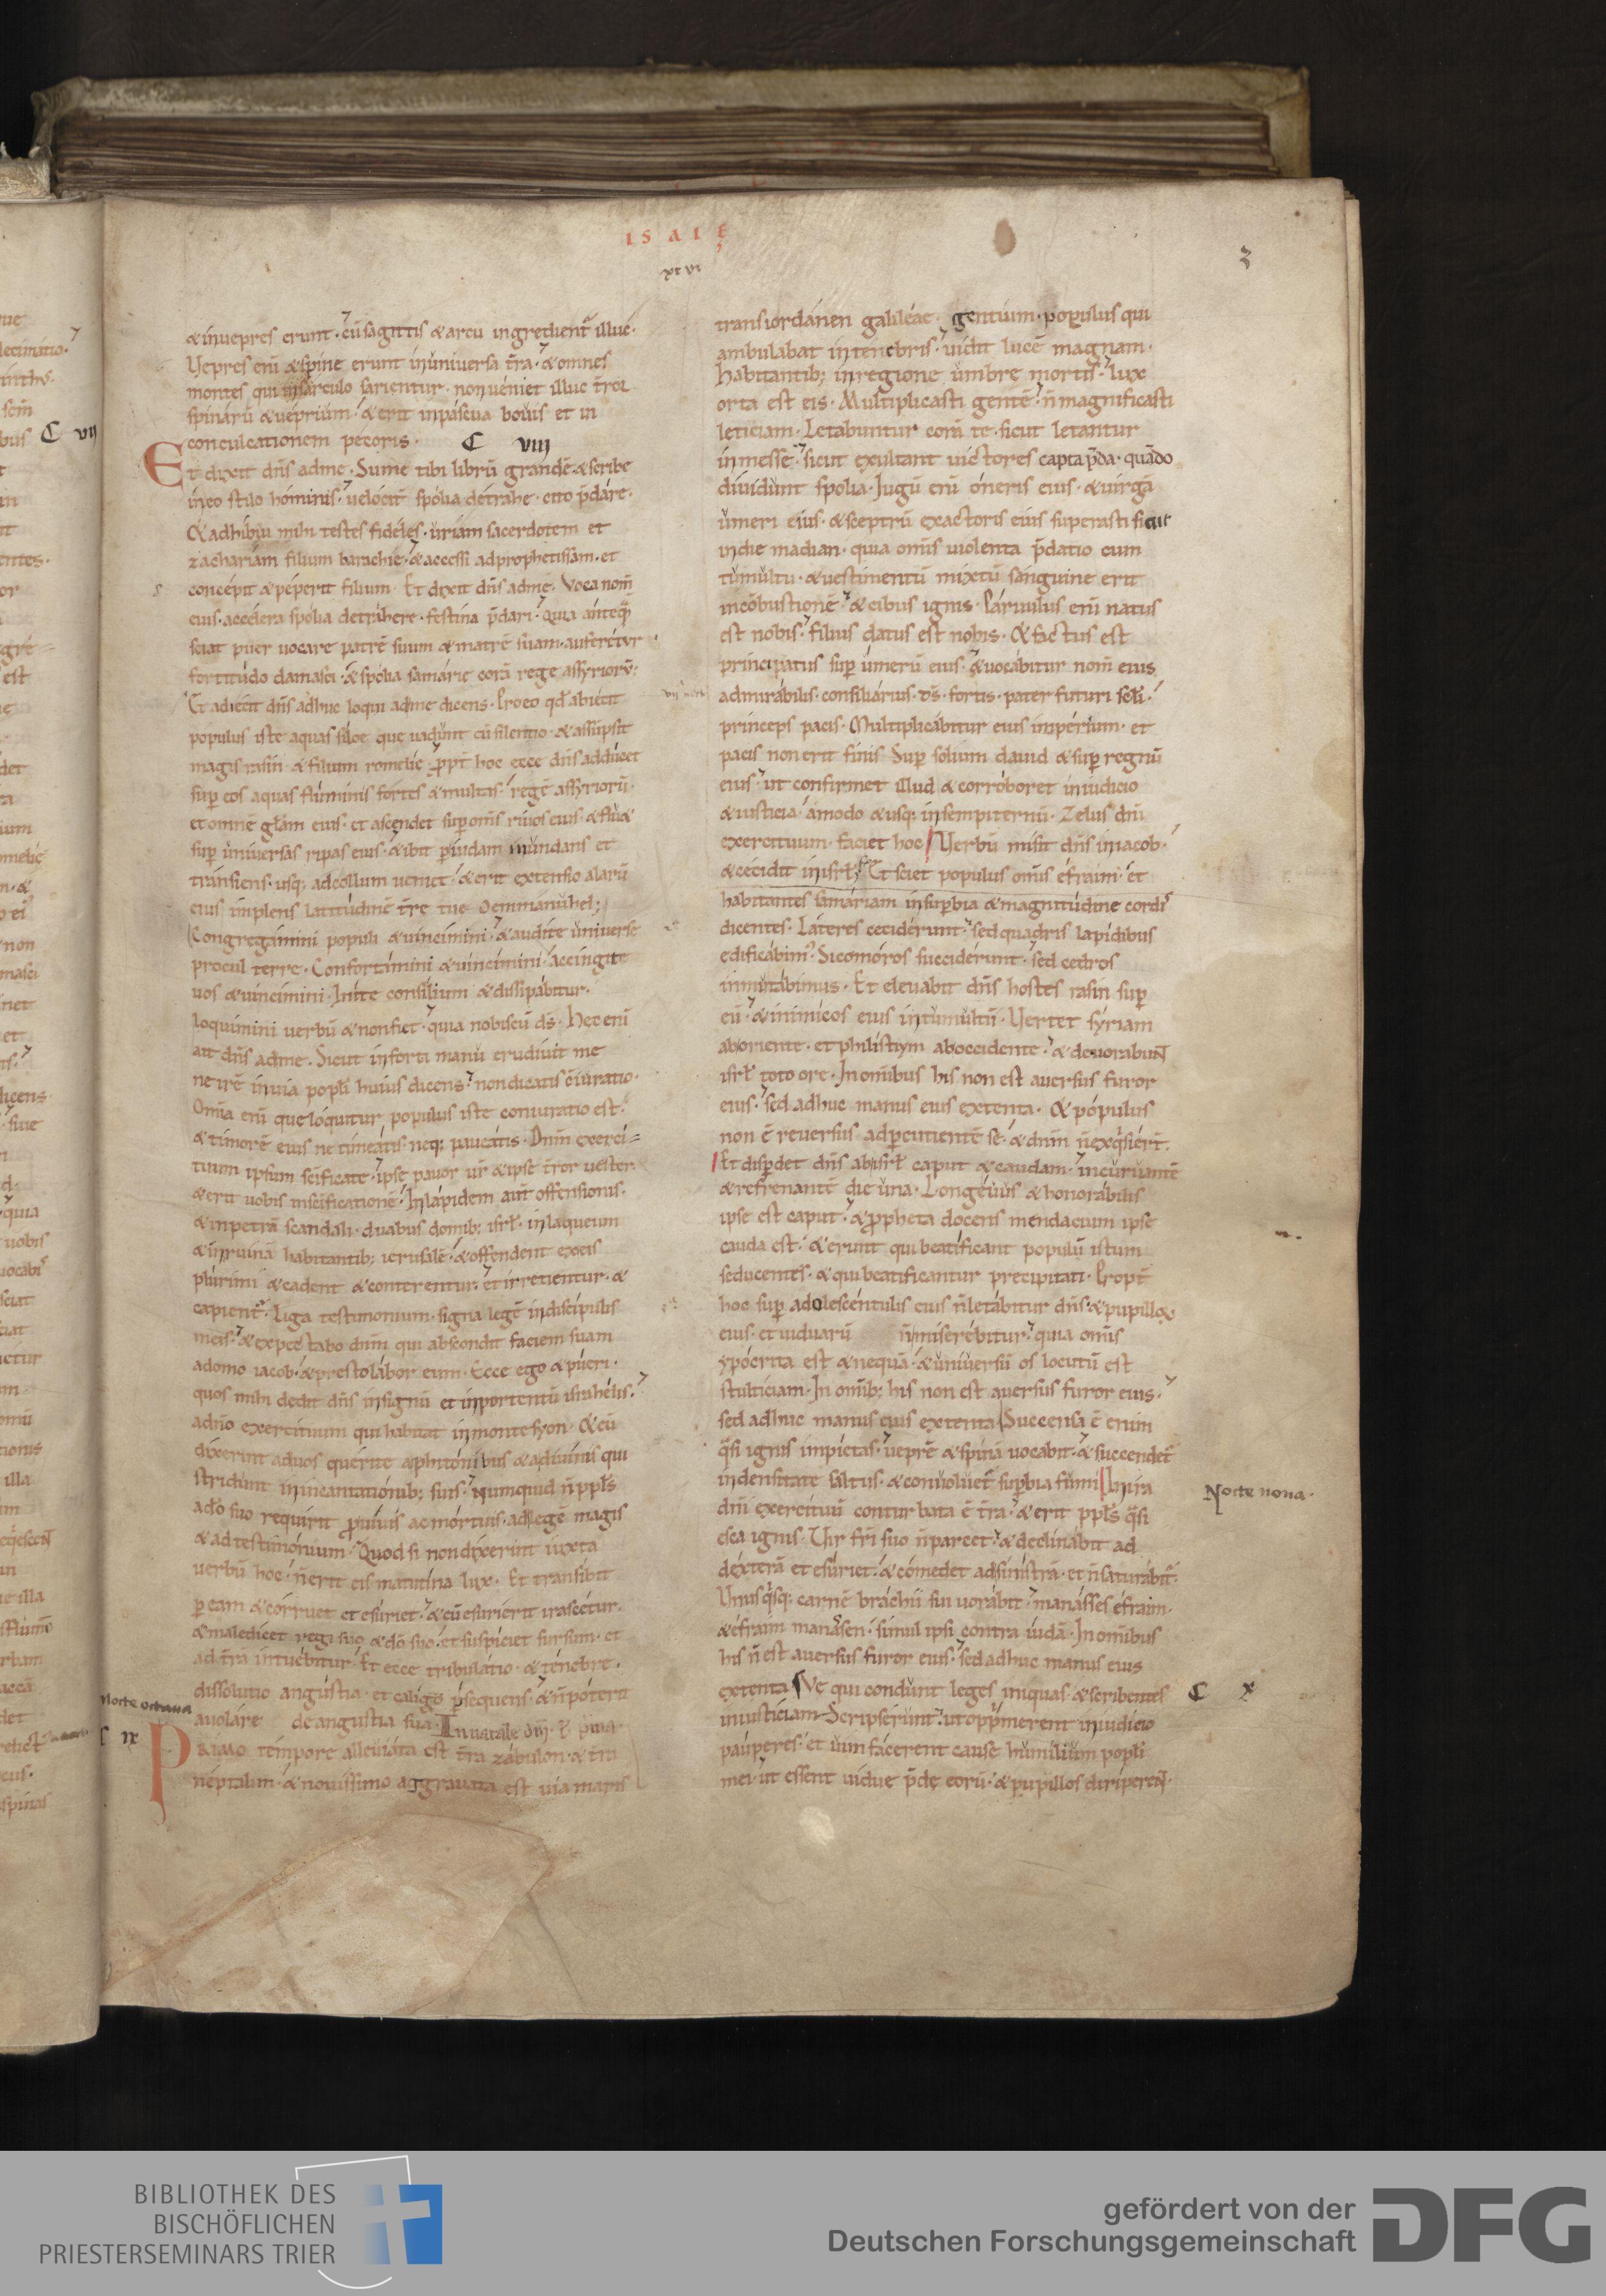 ISAIĘ
3
& inuepres erunt. cū sagittis & arcu ingredient᷑ illuc.
Vepres enī & spine erunt inuniuersa t̄ra. & omnes
montes qui insarculo sarientur. non ueniet illuc t̄ror
spinarū & ueprium. & erit inpascua bouis et in
conculcationem pecoris. C VIII
Et dixit dn̄s adme. Sume tibi librū grandē & scribe
ineo stilo hominis. uelocit᷑ spolia detrahe. cito p̄dare.
Et adhibui mihi testes fideles. uriam sacerdotem et
zachariam filium barachie. & accessi adprophetissam. et
concepit & peperit filium. Et dixit dn̄s adme. Voca nom̄
eius. accelera spolia detrahere. festina p̄dari. quia anteq̄
sciat puer uocare patrē suum & matrē suam. auferetur
fortitudo damasci. & spolia samarie corā rege assyriorū.
Et adiecit dn̄s adhuc loqui adme dicens. Proeo qđ abiecit
populus iste aquas siloe que uadunt cū silentio. & assūpsit
magis rasin & filium romelie. ꝓpt᷑ hoc ecce dn̄s adducet
sup̱ eos aquas fluminis fortes & multas. regē assyriorū.
et omnē glām eius. et ascendet sup̱ om̄s riuos eius. & flu&
sup̱ uniuersas ripas eius. & ibit p̱ iudam inundans et
transiens. usq; adcollum ueniet. & erit extensio alarū
eius implens latitudinē t̄re tue oemmanuhel;
Congregamini populi & uincimini. & audite uniuerse
procul terre. Confortamini & uincimini. accingite
uos & uincimini. Inite consilium & dissipabitur.
loquimini uerbū & nonfiet. quia nobiscū ds̄. Hec enī
ait dn̄s adme. Sicut inforti manu erudiuit me
ne irē inuia popłi huius dicens. nondicatis c̄iuratio.
Omīa enī que loquitur populus iste coniuratio est.
& timorē eius ne timeatis neq; paueatis. Dnm̄ exerci=
tuum ipsum sc̄ificate. ipse pauor ur̄ & ipse t̄ror uester.
& erit uobis insc̄ificationē. Inlapidem aut̄ offensionis.
& inpetrā scandali. duabus domib; isrł. inlaqueum
& inruinā habitantib; ierusalē. & offendent exeis
plurimi & cadent & conterentur. et irretientur. &
capient᷑. Liga testimonium. signa legē indiscipulis
meis. & expectabo dnm̄ qui abscondit faciem suam
adomo iacob. & prestolabor eum. Ecce ego & pueri.
quos mihi dedit dn̄s insignū et inportentū israhelis.
adn̄o exercituum qui habitat inmonte syon. Et cū
dixerint aduos querite aphitonibus & adiuinis qui
stridunt inincantationib; suis. Numquid n̄ ppłs
ađo suo requirit ꝓ uiuis ac mortuis. adlegē magis
& ad testimonium. Quod si nondixerint iuxta
uerbū hoc. n̄ erit eis matutina lux. Et transibit
p̱ eam & corruet et esuriet. & cū esurierit irascetur.
& maledicet regi suo & dō suo. et suspiciet sursum. et
ad t̄ra intuebitur. Et ecce tribulatio. & tenebre.
dissolutio angustia. et caligo p̱sequens. & n̄ poterit
Nocte octaua
auolare de angustia sua.
IX
PRIMO tempore alleuiata est t̄ra zabulon. & t̄ra
neptalim. & nouissimo aggrauata est uia maris
transiordanen galileae. gentium. populus qui
ambulabat intenebris. uidit lucē magnam.
habitantib; inregione umbre mortis. lux
orta est eis. Multiplicasti gentē. n̄ magnificasti
leticiam. Letabuntur corā te. sicut letantur
inmesse. sicut exultant uictores capta p̄da. quādo
diuidunt spolia. Iugū enī oneris eius. & uirgā
umeri eius. & sceptrū exactoris eius superasti sicut
indie madian. quia om̄is uiolenta p̄datio cum
tumultu. & uestimentū mixtū sanguine erit
incōbustionē. & cibus ignis. Paruulus enī natus
est nobis. filius datus est nobis. Et factus est
principatus sup̱ umerū eius. & uocabitur nom̄ eius
admirabilis. consiliarius. ds̄. fortis. pater futuri scłi.
princeps pacis. Multiplicabitur eius imperium. et
pacis non erit finis. Sup̱ solium dauid & sup̱ regnū
eius. ut confirmet illud & corroboret iniudicio
& iusticia. amodo & usq; insempiternū. Zelus dn̄i
exercituum. faciet hoc. Verbū misit dn̄s iniacob.
& cecidit inisrł. Et sciet populus om̄is efraim. et
habitantes samariam insup̱bia & magnitudine cordis
dicentes. Lateres ceciderunt. sed quadris lapidibus
edificabim᷒. Sicomoros succiderunt. sed cedros
inmutabimus. Et eleuabit dn̄s hostes rasin sup̱
eū. & inimicos eius intumultū. Vertet syriam
aboriente. et philistiym aboccidente. & deuorabunt
isrł toto ore. Inom̄ibus his non est auersus furor
eius. sed adhuc manus eius extenta. Et populus
non ē reuersus adp̱cutientē se. & dnm̄ n̄ exq̇sier̄t.
Et disp̱det dn̄s abisrł caput & caudam. incuruantē
& refrenantē die una. Longeuus & honorabilis
ipse est caput. & ꝓpheta docens mendacium ipse
cauda est. & erunt qui beatificant populū istum
seducentes. & qui beatificantur precipitati. Propt᷑
hoc sup̱ adolescentulis eius n̄ letabitur dn̄s. & pupilloꝝ
eius. et uiduarū n̄ miserebitur. quia om̄is
ypocrita est & nequā. & uniuersū os locutū est
stulticiam. In om̄ib; his non est auersus furor eius.
sed adhuc manus eius extenta. Succensa ē enim
q̄si ignis impietas. uepre᷑ & spinā uocabit. & succendet᷑
indensitate saltus. & conuoluet᷑ sup̱bia fumi. Inira
Nocte nona.
dn̄i exercituū conturbata ē t̄ra. & erit ppłs q̄si
esca ignis. Vir fr̄i suo n̄ parcet. & declinabit ad
dexterā et esuriet. & comedet adsinistrā. et n̄ saturabit᷑.
Vnusq̇sq; carnē brachii sui uorabit. manasses efraim.
& efraim manassen. simul ipsi contra iudā. Inom̄ibus
his n̄ est auersus furor eius. sed adhuc manus eius
extenta. Ve qui condunt leges iniquas. & scribentes C X
iniusticiam Scripserunt. ut opp̄merent iniudicio
pauperes. et uim facerent cause humilium popłi
mei. ut essent uidue p̄dę eorū. & pupillos diriperent.
BIBLIOTHEK DES
BISCHÖFLICHEN
PRIESTERSEMINARS TRIER
gefördert von der
Deutschen Forschungsgemeinschaft
DFG